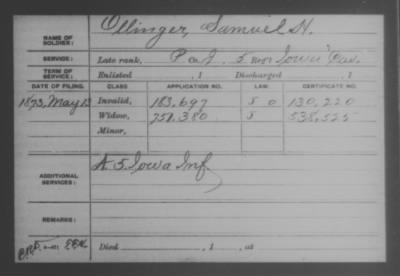 NAME OF SOLDIER: Ollinger, Samuel H.
SERVICE: Late rank, P & I 5 Regt Iowa Cav.
TERM OF SERVICE: Enlisted , 1 Discharged , 1
DATE OF FILING. CLASS. APPLICATION NO. LAW. CERTIFICATE NO.
1873, May 13 Invalid, 183,697 S O 130,220
Widow, 751,380 S 538,525
Minor,
ADDITIONAL SERVICES: A 5 Iowa Inf
REMARKS:
Died , 1 , at